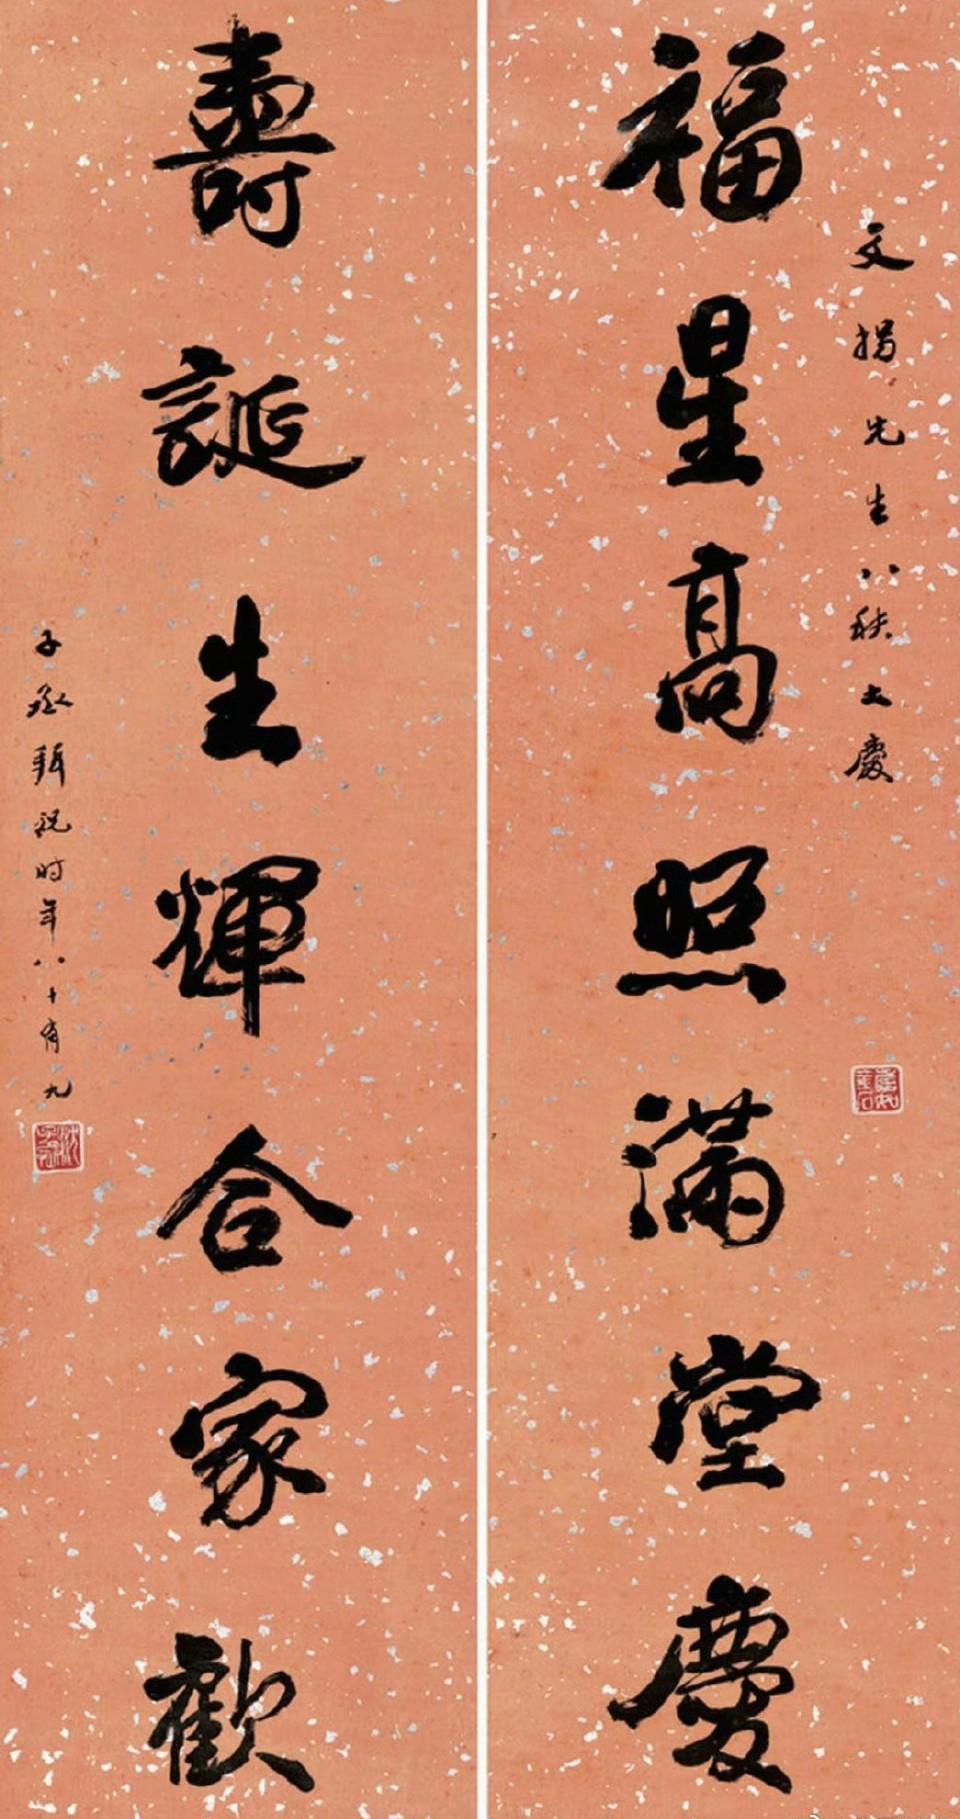 文揚先生八秩大慶
福星高照滿堂慶
壽誕生輝合家歡
子丞拜祝时年八十有九